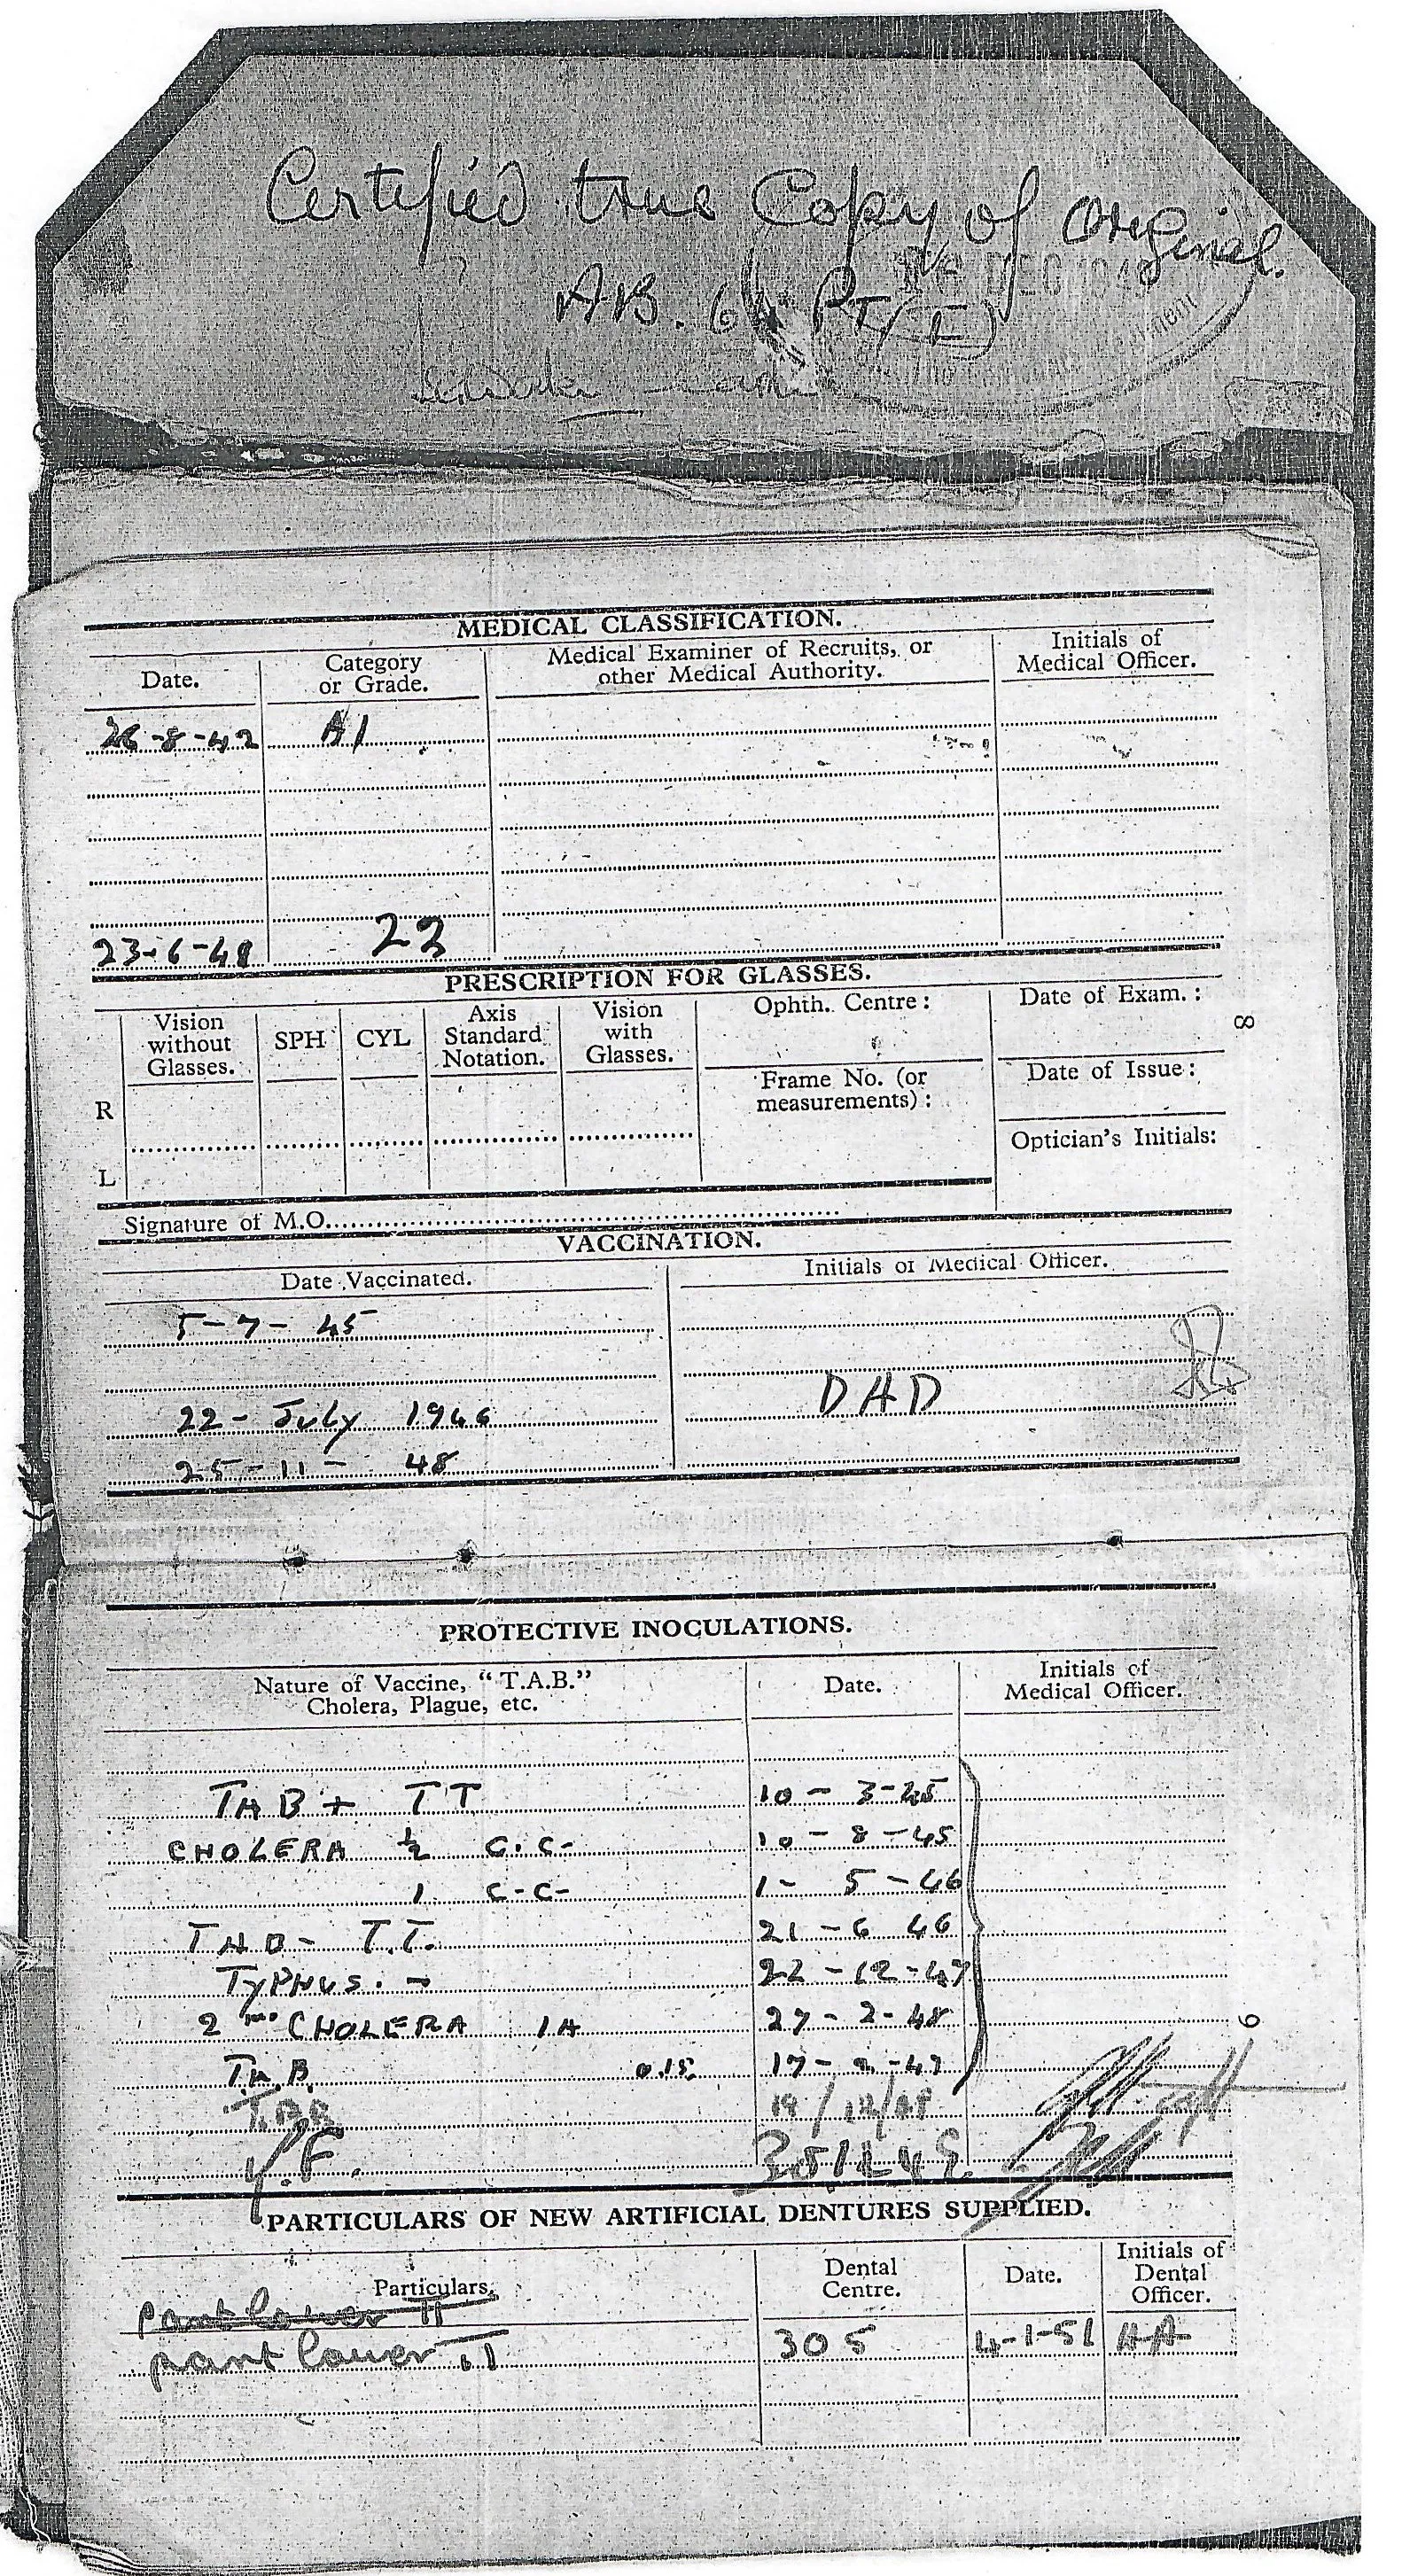 Certified true Copy of Original.
AB. 64 PT (I)
DEC 194
MEDICAL CLASSIFICATION.
Date. Category or Grade. Medical Examiner of Recruits, or other Medical Authority. Initials of Medical Officer.
26-8-42 A1
23-6-48 22
PRESCRIPTION FOR GLASSES.
Vision without Glasses. SPH CYL Axis Standard Notation. Vision with Glasses. Ophth. Centre: Date of Exam.:
8
Frame No. (or measurements): Date of Issue:
R
Optician's Initials:
L
Signature of M.O.
VACCINATION.
Date Vaccinated. Initials of Medical Officer.
5-7-45
22-July 1946 DAD
25-11-48
PROTECTIVE INOCULATIONS.
Nature of Vaccine, "T.A.B." Cholera, Plague, etc. Date. Initials of Medical Officer.
TAB + TT 10-3-45
CHOLERA ½ C.C- 10-8-45
1 C-C- 1-5-46
TAB- T.T. 21-6 46
TYPHUS. - 22-12-47
2nd CHOLERA 1A 27-2-48
9
T.A.B. 0.15
19/12/48
Y.F.
PARTICULARS OF NEW ARTIFICIAL DENTURES SUPPLIED.
Particulars. Dental Centre. Date. Initials of Dental Officer.
part lower
part lower 305 4-1-51 HA